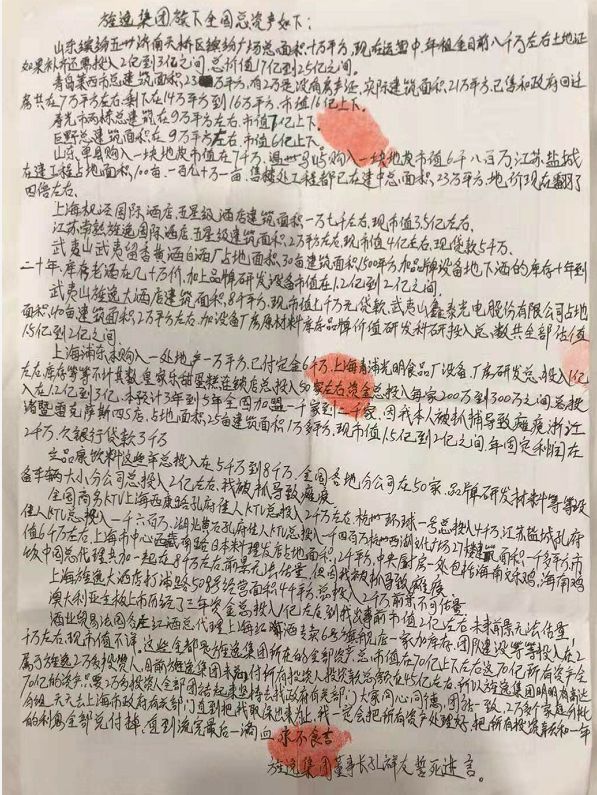 旌逸集团旗下全国总资产如下：
山东缤纷五洲济南天桥区缤纷广场总面积十万平方，现在运营中，年租金目前八千万左右土地证
如果补市还需投入2亿到3亿之间，总价值17亿到25亿之间。
青岛莱西市总建筑面积，23万平方，有2万是没有房产证，实际建筑面积，21万平方，已售和政府回迁
房共在7万平方左右，剩下在14万平方到16万平方，市值16亿上下。
寿光市两栋总建筑，在9万平方左右，市值7亿上下。
巨野总建筑面积，在9万平方左右，市值6亿上下。
山东，单县购入一块地皮市值在7千万，购入一块地皮市值6千八百万江苏盐城
在建工程占地面积，100亩，一百九十万一亩，售楼处工程都已在建中总面积，23万平方，地价现在翻了
四倍左右。
上海枫泾国际酒店，五星级酒店建筑面积一万七千左右，现市值3.5亿左右，
江苏南赵旌逸国际酒店，五星级建筑面积，2万平方左右，现市值4亿左右，现贷款5千万，
武夷山武夷留香黄酒白酒厂占地面积，30亩建筑面积1500平方，加品牌设备地下酒的库存十年到
二十年，库存老酒在几十万价，加上品牌研发设备市值在1.2亿到2亿之间，
武夷山旌逸大酒店建筑面积，8千平方，现市值上千万元贷款，武夷山鑫泰光电股份有限公司占地
面积，40亩建筑面积，2万平方左右，加设备厂房原材料库存品牌价值研发科研投入总，数共全部估值
1.5亿到2亿之间，
上海浦东购入一处地产一万平方，已付定金6千万，上海青浦光明食品厂设备，厂房研发总，投入1亿
左右，库存等等不计其数，皇家乐甜蛋糕连锁店总投入50家左右资金总投入每家200万到300万之间总投
入在1.2亿到3亿，本预计3年到5年全国加盟一千家到二千家，因我本人被抓捕导致瘫痪，浙江
诸暨雷克萨斯四S店，占地面积，25亩建筑面积1万多平方，现市值1.5亿到2亿之间，年固定利润在
2千万，欠银行贷款3千万
立品康饮料这些年总投入在5千万到8千万，全国各地分公司在50家，品牌研发材料等等设
备车辆大小分公司总投入2亿左右，我被抓导致瘫痪
全国商务KTV上海西康路孔府佳人KTV总投入2千万左右，杭州环球一号总投入4千万，江苏盐城孔府
佳人KTV总投入一千六百万，湖北黄石孔府佳人KTV总投入一千四百万杭州西湖文化广场27楼建筑面积一千多平方市
值6千万左右，上海市中心西藏南路日本料理左右店占地面积，2千平方，中央厨房一处包括海南文东鸡，海南鸡
饭中国总代理共加一起在8千万左右前景无法估量，但因我被抓导致瘫痪
上海旌逸大酒店打浦路508号经营面积4千平方总投入，2千万前景不可估量
澳大利亚主板上市历经了三年资金总投入1亿左右，到我出事前市值2亿左右未来前景无法估量，
酒业贸易法国红酒总代理上海红酒专卖6号旗舰店一家加库存，团队建设等等投入在2
千万左右，现市值不详，这些全部是旌逸集团所在的全部资产，总市值在70亿上下左右这70亿所有资产全
属于旌逸2万多投资人，目前旌逸集团未付所有投资人投资款总额款在45亿左右，所以旌逸集团明明有着近
70亿的资产，只要2万多投资人全部团结起来坚持去找政府有关部门大家同心同德，团结一致，2万多个家庭分批
分组，天天去上海市政府有关部门直到把我取保出来为止，我一定会把所有资产处理好，把所有投资款和一年
的利息全部兑付掉，直到流完最后一滴血 永不食言
旌逸集团董事长孔祥友誓死进言。